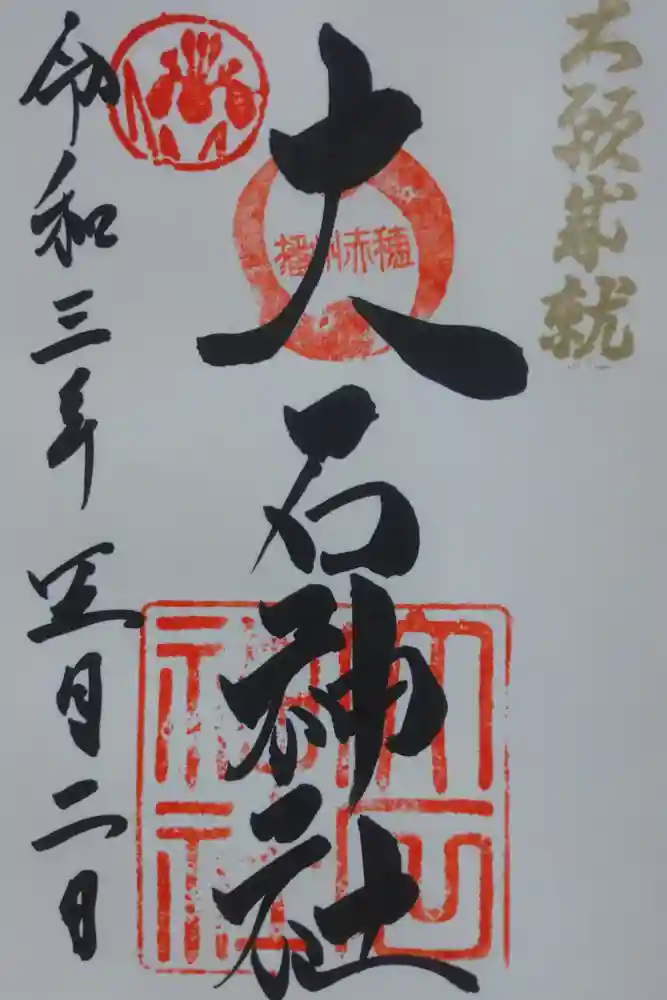 大願成就
大石神社
播州赤穂
大石神社
令和三年五月二日